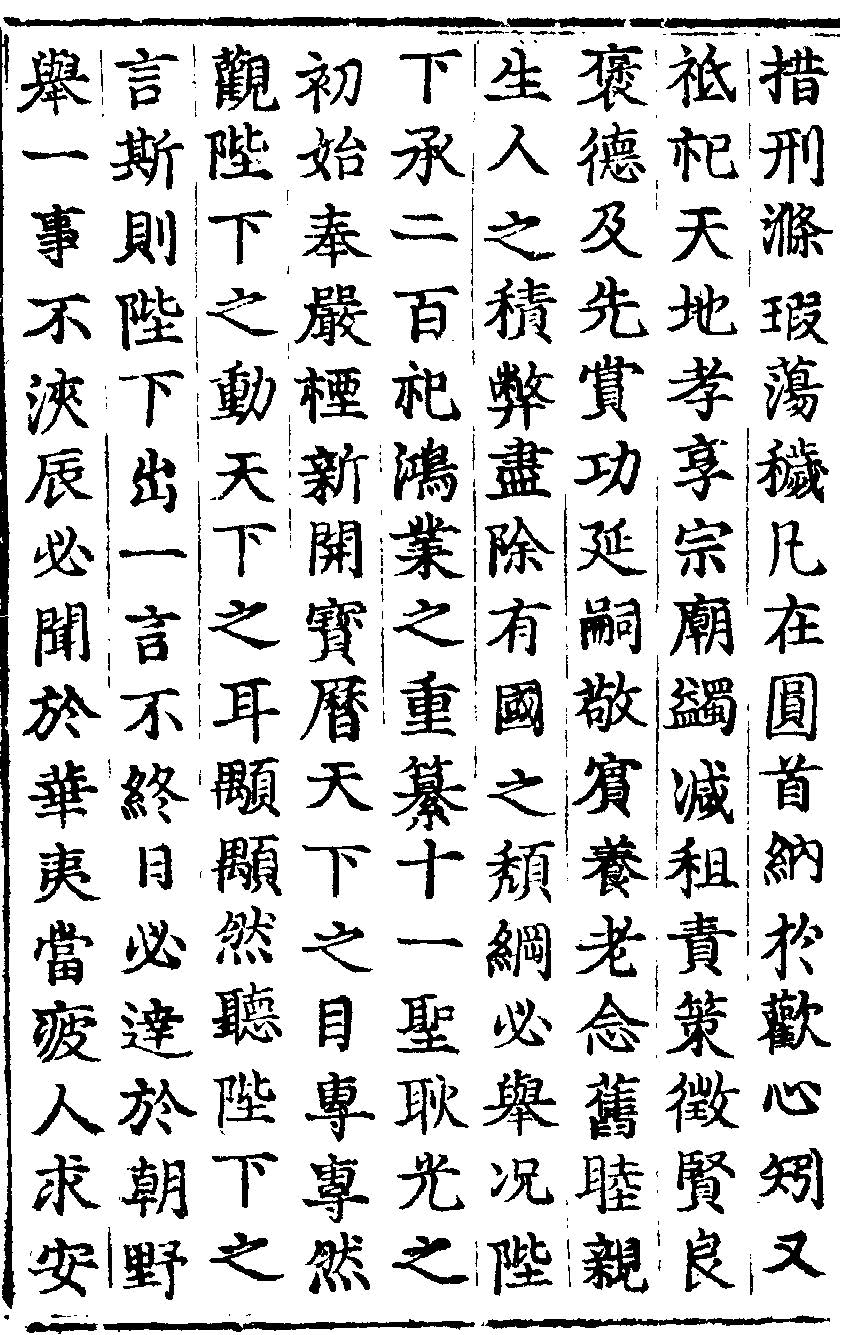 措刑滌瑕蕩穢凡在圓首納於歡心矧又
祗祀天地孝享宗廟蠲減租責策徵賢良
褒德及先賞功延嗣敬賓養老念舊睦親
生人之積弊盡除有國之頹綱必舉况陛
下承二百祀鴻業之重纂十一聖耿光之
初始奉嚴禋新開寶曆天下之目專專然
觀陛下之動天下之耳顒顒然聽陛下之
言斯則陛下出一言不終日必達於朝野
舉一事不浹辰必聞於華夷當疲人求安